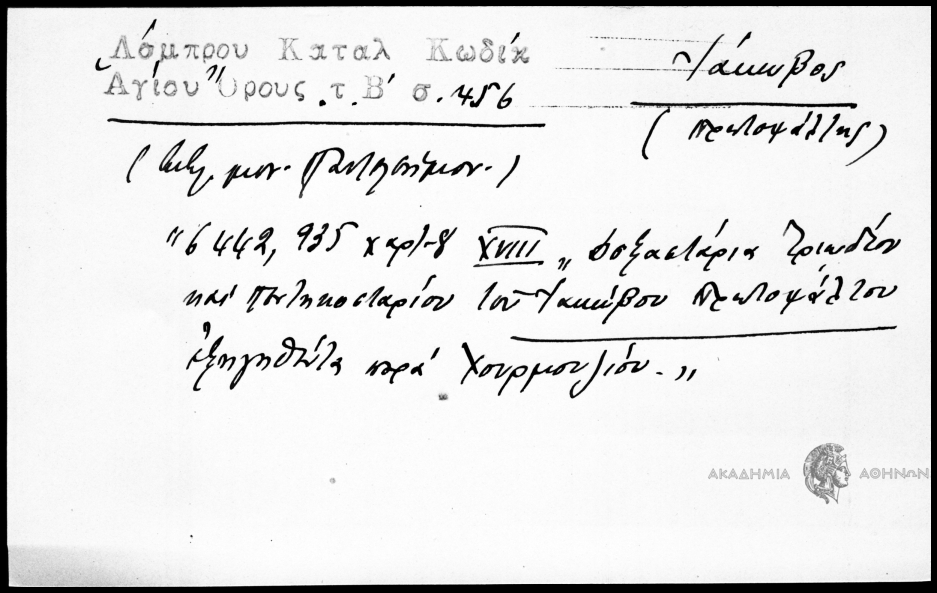 Λάμπρου Καταλ Κωδίκ
Ἁγίου Ὄρους τ. Β' σ. 456
Ἰάκωβος
(πρωτοψάλτης)
( μον. Παντελεήμον. )
"6442, 935 χαρτ. 8 XVIII „ Δοξαστάρια Τριωδίου
καὶ Πεντηκοσταρίου τοῦ Ἰακώβου Πρωτοψάλτου
ἐξηγηθέντα παρὰ Χουρμουζίου. „
ΑΚΑΔΗΜΙΑ ΑΘΗΝΩΝ